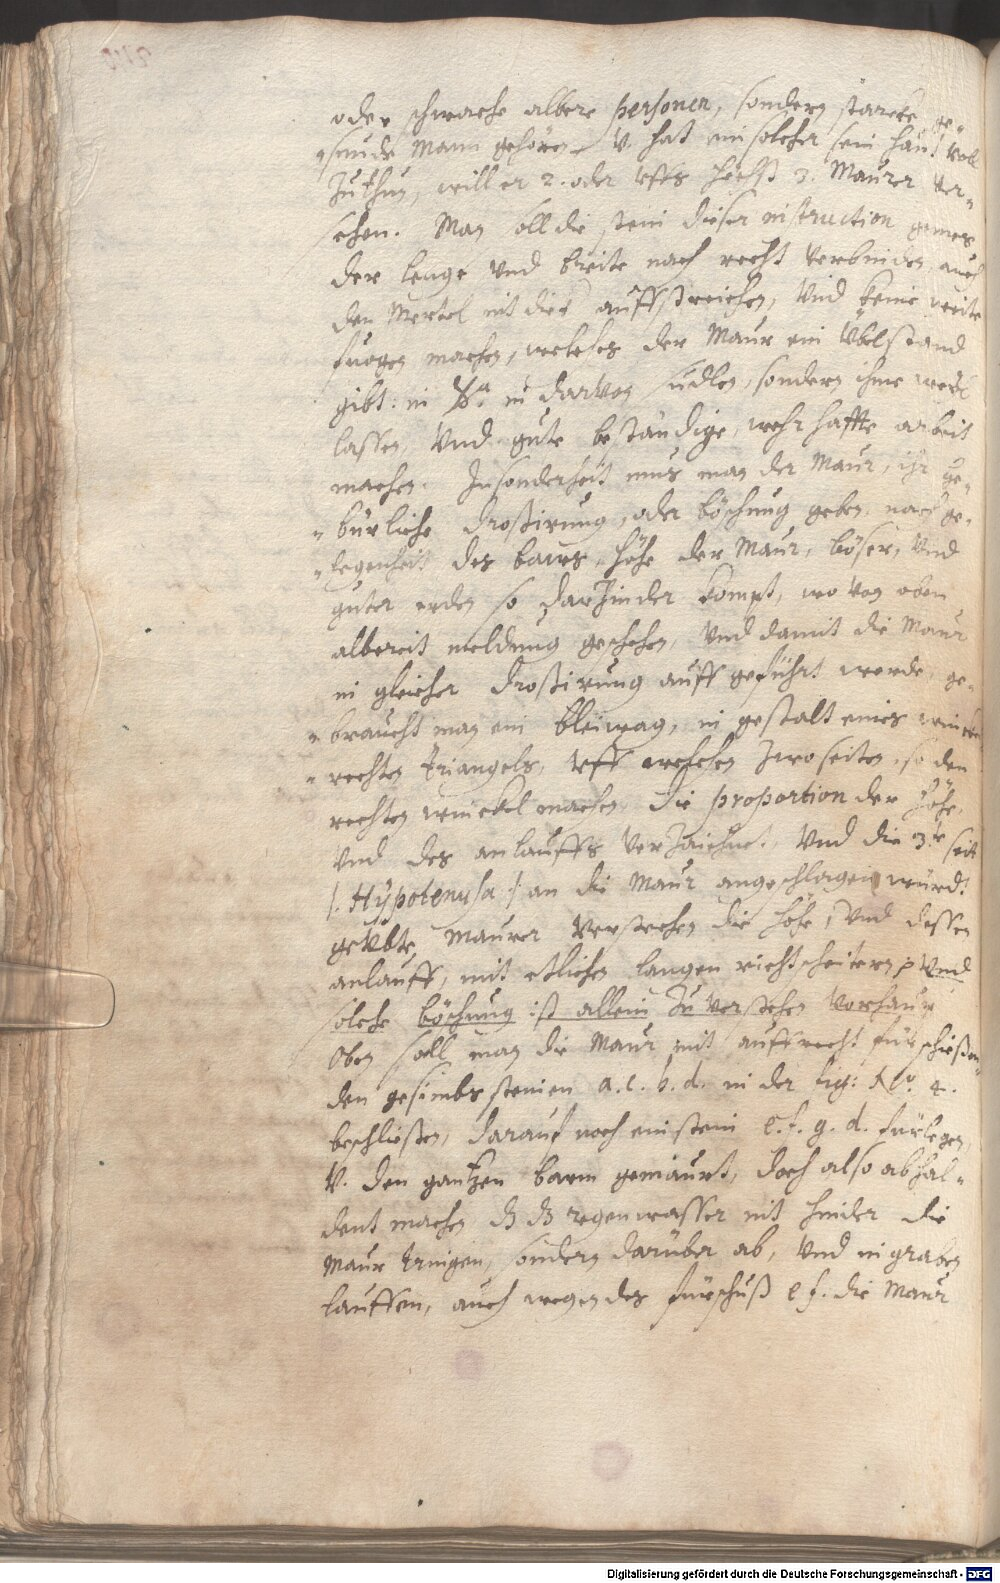 oder schwache albere personen, sondern starcke ge¬
"sunde Mann gehören, V. hat ein solcher sein haut voll
Zuthun, will er 2. oder uffs höchst 3. Maurer ver¬
sehen. Man soll die stein dieser instruction gemess
der lenge Vnd breite nach recht verbinden, auch
den Mertel nit dick auffstreichen, Vnd keine weite
fuogen machen, welches der Maur ein Vbelstand
gibt: in darvon sudlen, sondern ihme weil
lassen, Vnd gute bestandige, wehrhaffte arbeit
machen. Insonderheit mus man der Maur, ihr ge¬
"bürliche Drossirung, oder böschung geben nach ge¬
"legenheit des baues, höhe der Maur, böser, Vnd
guter erden so darhinder kompt, wo von oben
albereit meldung geschehen, Vnd damit die Maur
in gleicher Drossirung auffgeführt werde, ge¬
"braucht man ein bleiwag, in gestalt eines winckel
"rechten triangels, uff welchen zwo seiten, so den
rechten winckel machen die proportion der Höhe,
Vnd des anlauffs verzaichnet, Vnd die 3.te seit
/: Hypotenusa :/ an die Maur angeschlagen würd:
geübte Maurer verstehen die höhe, Vnd dessen
anlauff, mit etlichen langen richtscheitern, Vnd
solche böschung ist allein Zu verstehen
Oben soll man die Maur mit auffrecht fürschiessen¬
den gesimbs steinen a. c. b. d. in der fig: No. 4.
beschliessen, darauf noch ein stein e. f. g. d. fürlegen,
V. den gantzen barm gemaurt, doch also abhal¬
dent machen dz dz regenwasser nit hinder die
Maur tringen, sondern darüber ab, Vnd in graben
lauffen, auch wegen des fürschuss e f. die Maur
Digitalisierung gefördert durch die Deutsche Forschungsgemeinschaft - DFG